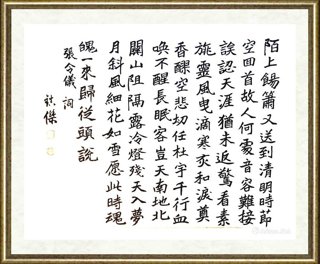 陌上餳簫又送到清明時節
空回首故人何處音容難接
誤認天涯猶未返驚看素
旐靈風曳滴寒衣和淚奠
香醪空悲切任杜宇千行血
喚不醒長眠客豈天南地北
關山阻隔露冷燈殘天入夢
月斜風細花如雪愿此時魂
魄一來歸從頭說
張令儀 詞
傑